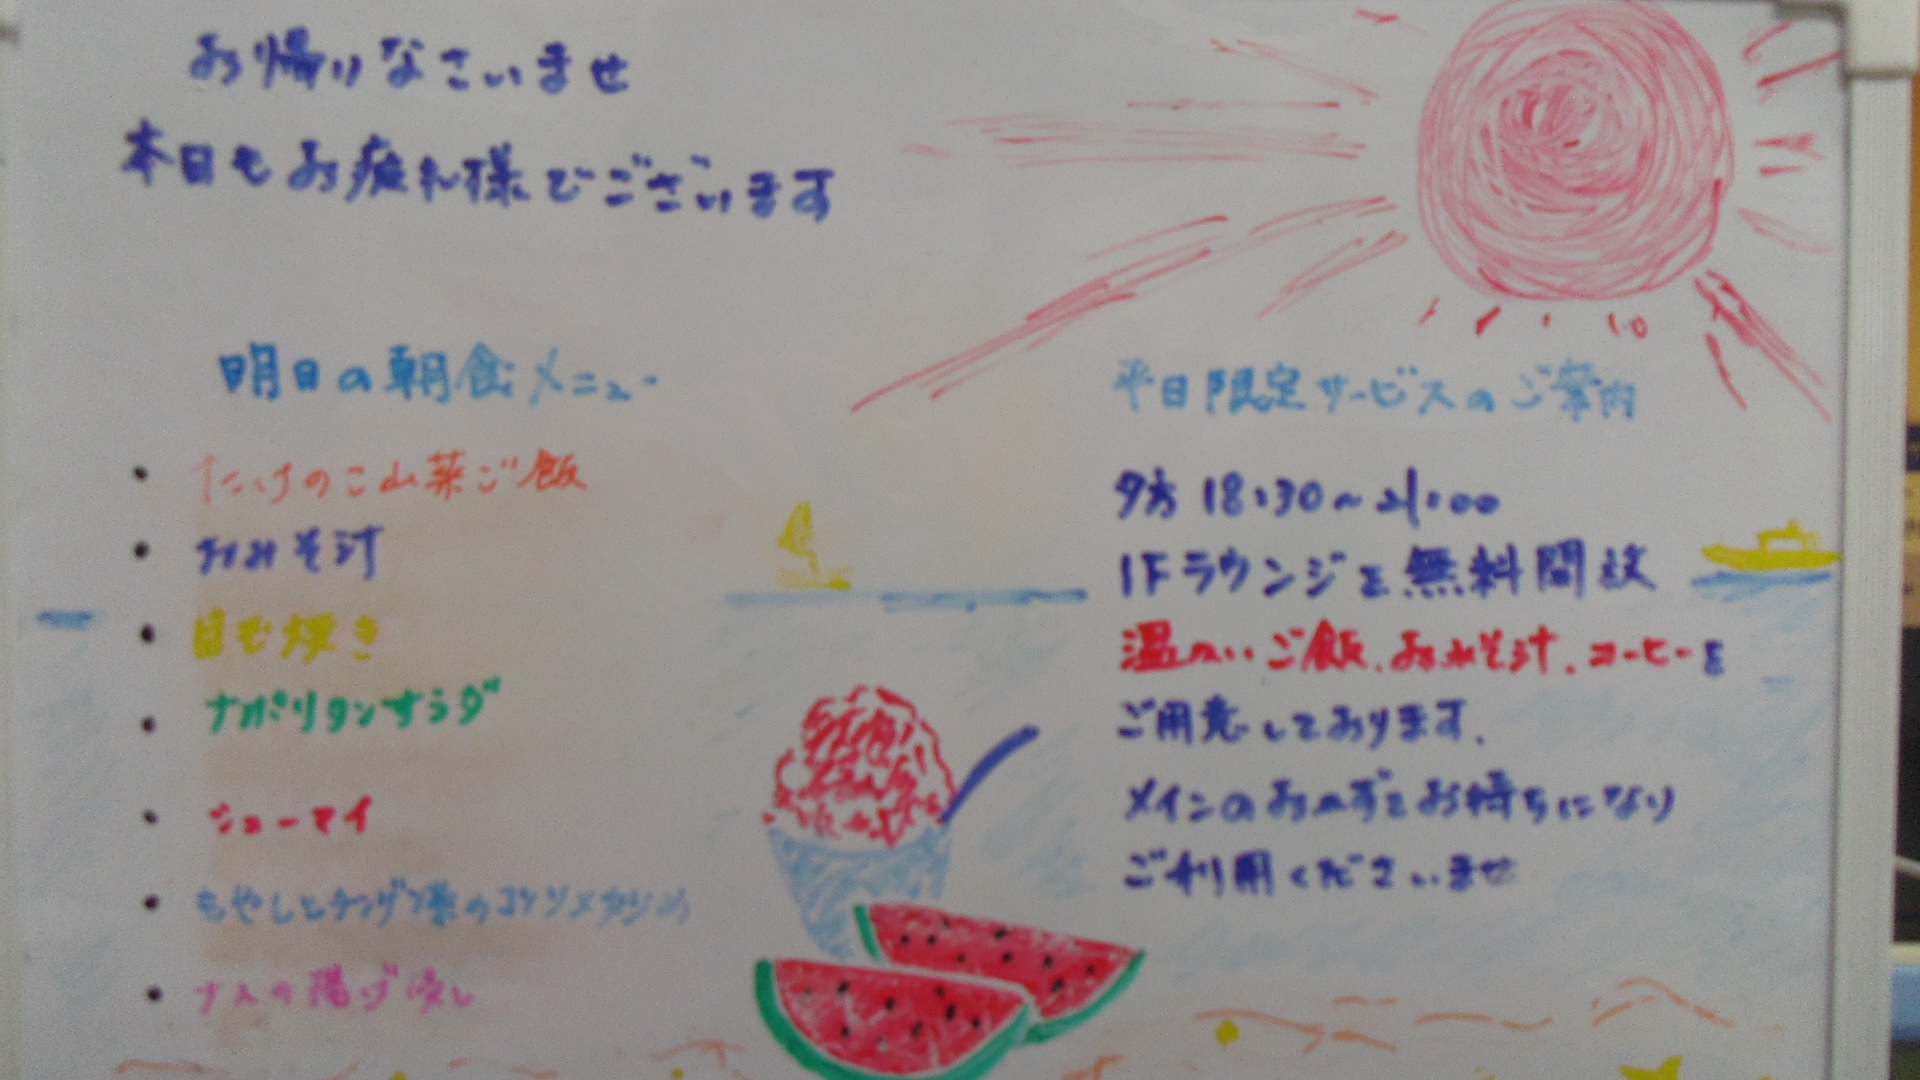 お帰りなさいませ
本日もお疲れ様でございます
明日の朝食メニュー
・たけのこ山菜ご飯
・おみそ汁
・目玉焼き
・ナポリタンサラダ
・シューマイ
・もやしとチンゲン菜の
・ナスの揚げ浸し
平日限定サービスのご案内
夕方 18:30~21:00
1Fラウンジを無料開放
温かいご飯、おみそ汁、コーヒーを
ご用意しております。
メインのおかずをお持ちになり
ご利用くださいませ